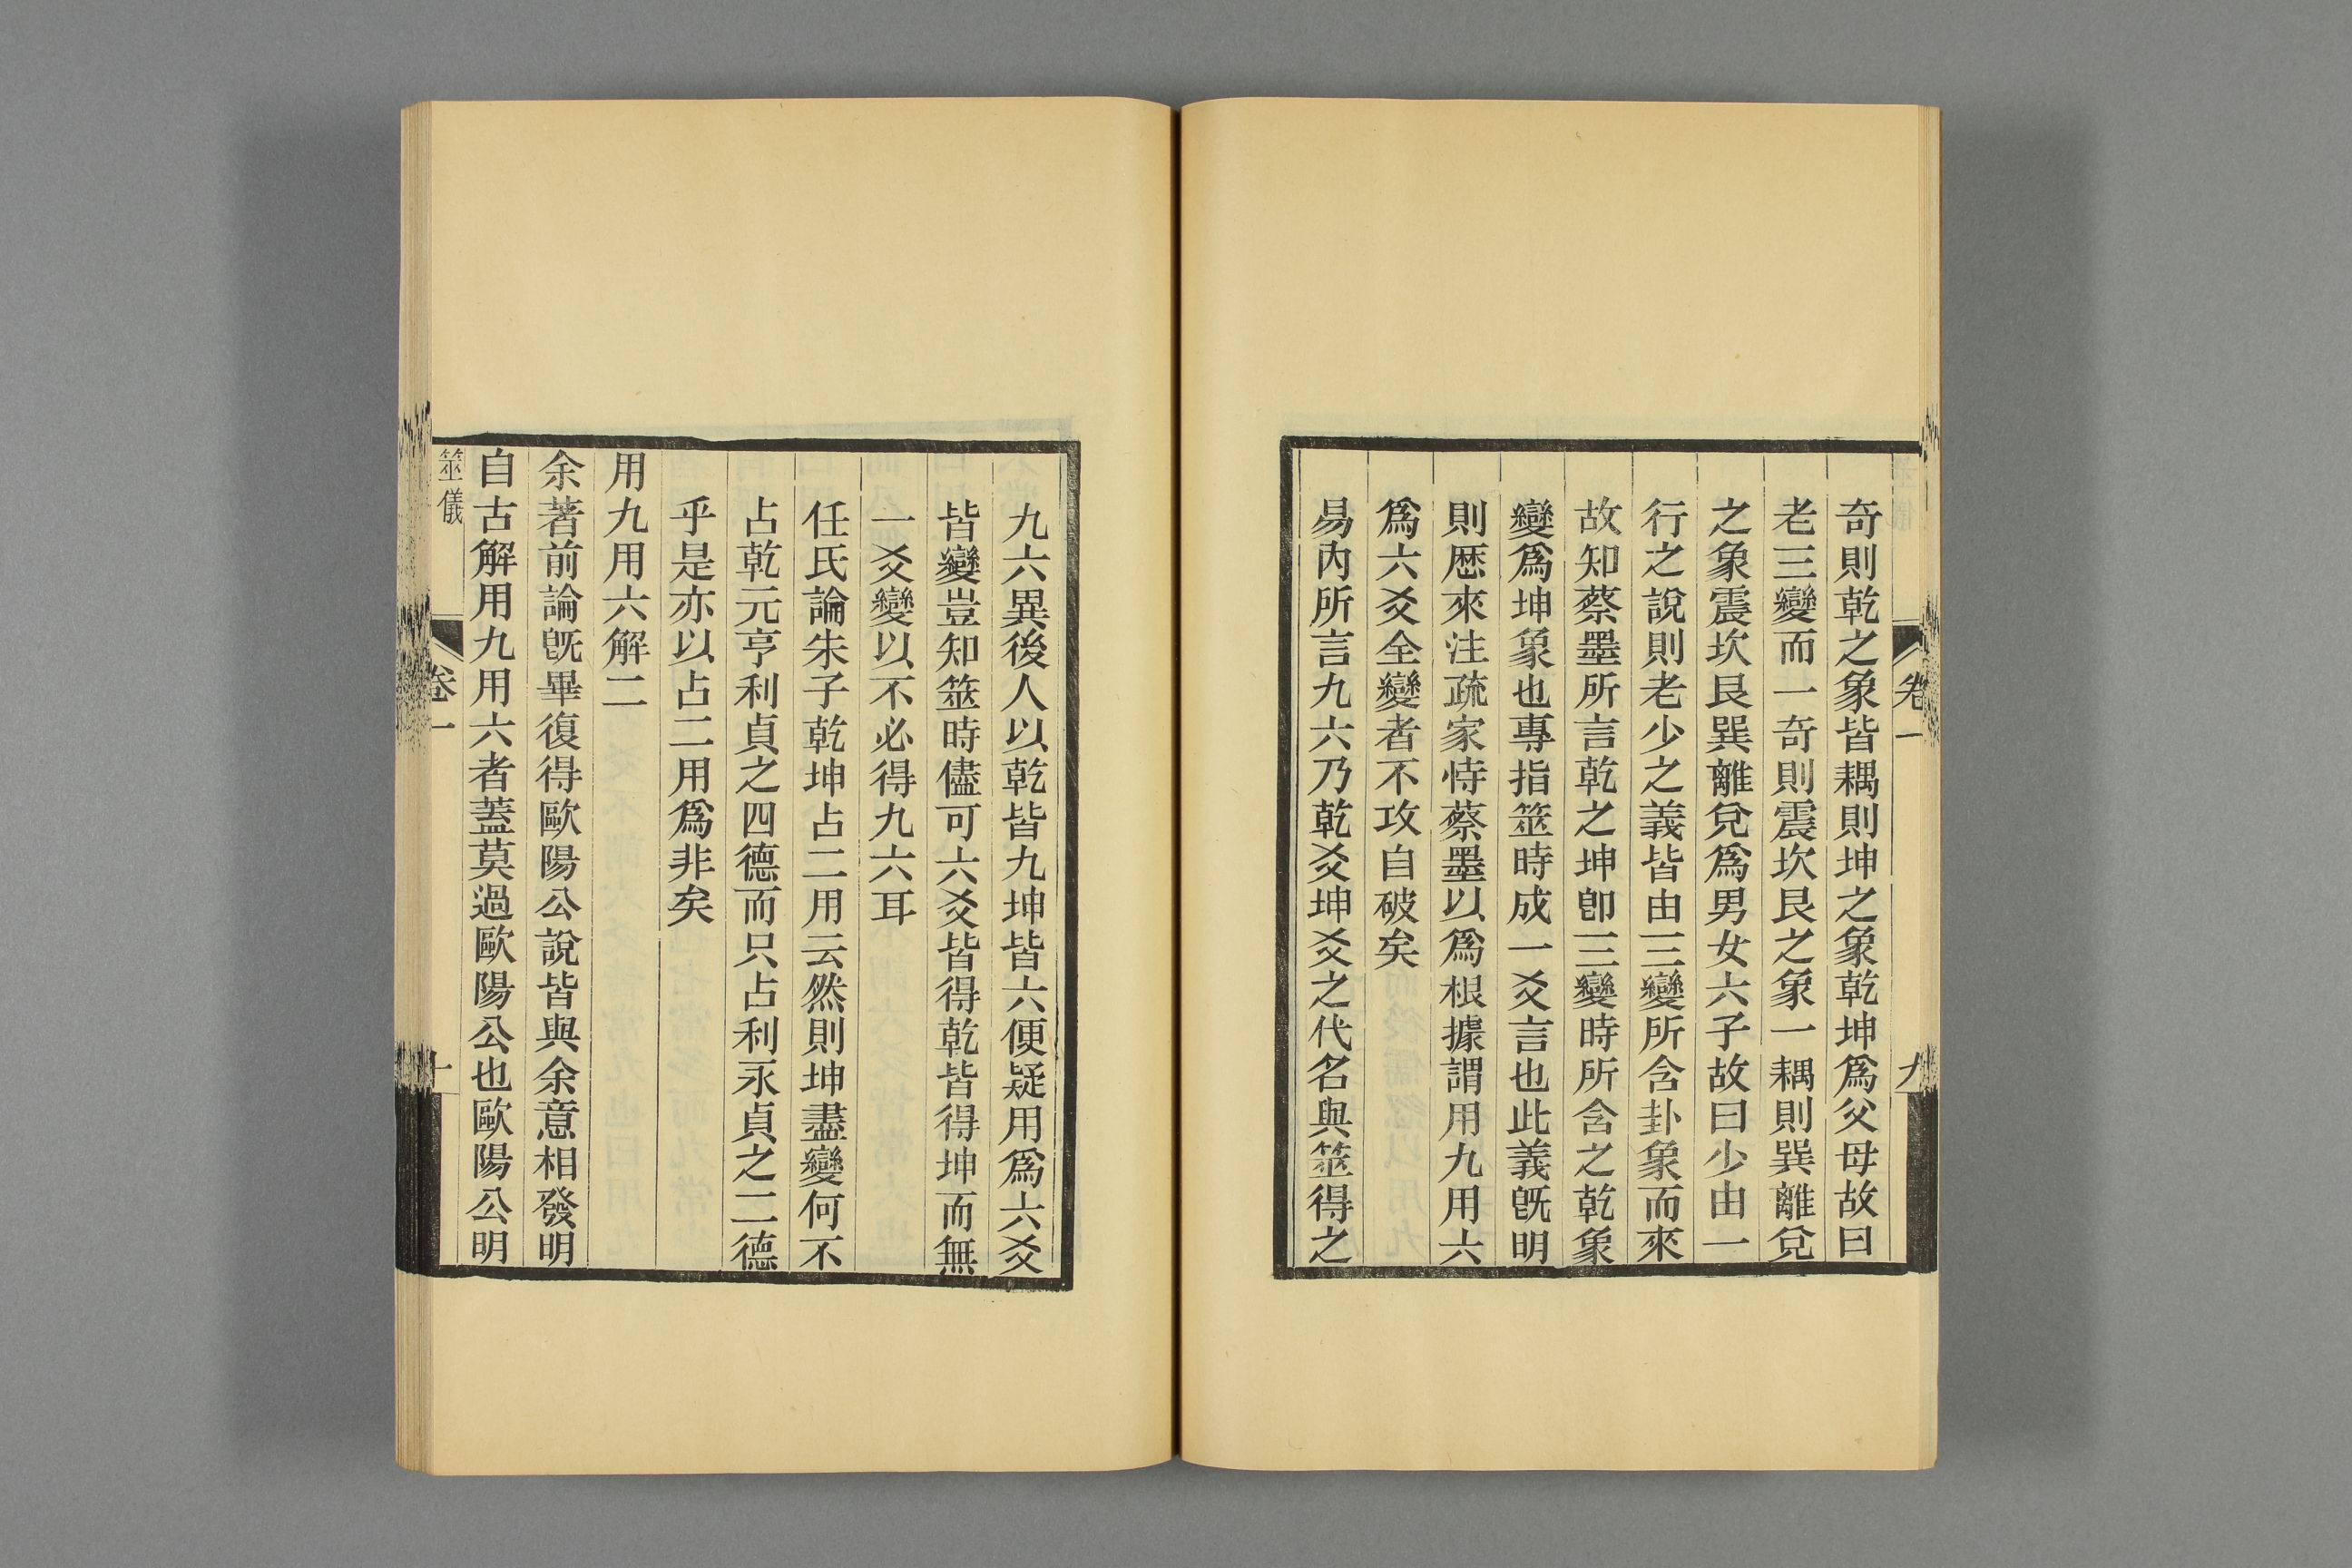 奇則乾之象皆耦則坤之象乾坤爲父母故曰
老三變而一奇則震坎艮之象一耦則巽離兌
之象震坎艮巽離兌爲男女六子故曰少由一
行之說則老少之義皆由三變所含卦象而來
故知蔡墨所言乾之坤卽三變時所含之乾象
變爲坤象也專指筮時成一爻言也此義旣明
則歷來注疏家恃蔡墨以爲根據謂用九用六
爲六爻全變者不攻自破矣
易內所言九六乃乾爻坤爻之代名與筮得之
九六異後人以乾皆九坤皆六便疑用爲六爻
皆變豈知筮時儘可六爻皆得乾皆得坤而無
一爻變以不必得九六耳
任氏論朱子乾坤占二用云然則坤盡變何不
占乾元亨利貞之四德而只占利永貞之二德
乎是亦以占二用爲非矣
用九用六解二
余著前論旣畢復得歐陽公說皆與余意相發明
自古解用九用六者蓋莫過歐陽公也歐陽公明
筮儀
卷一
十